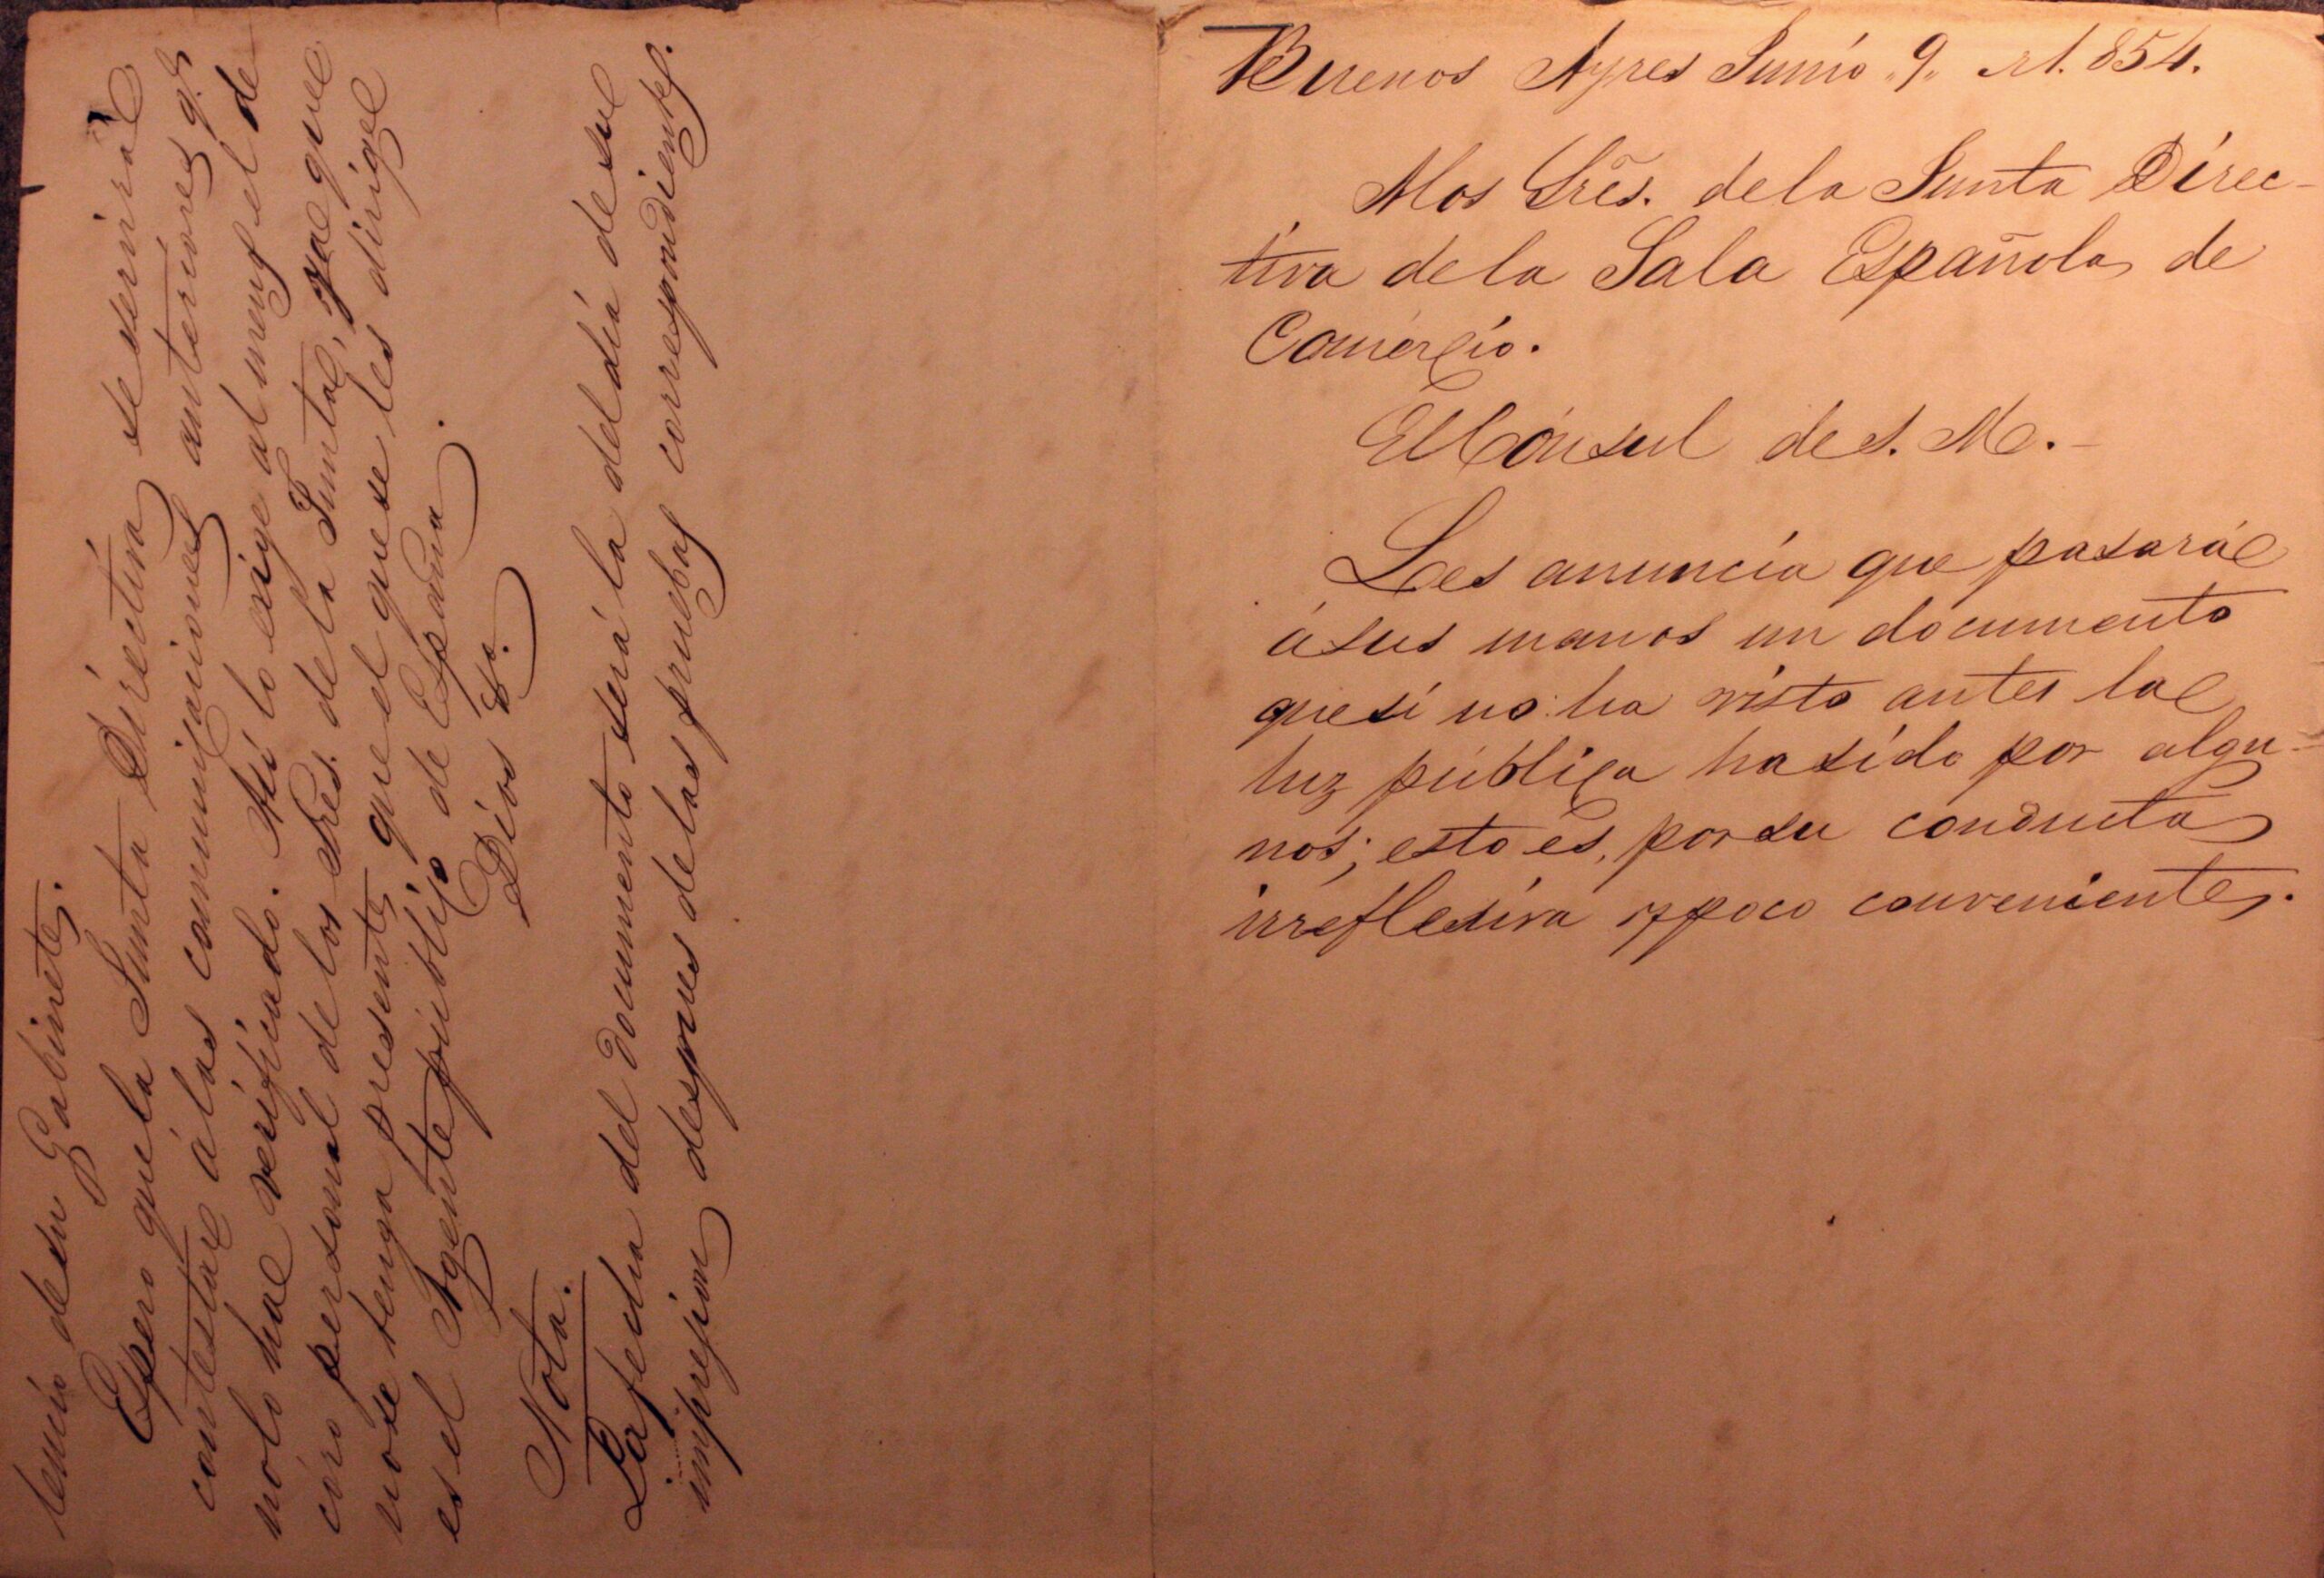 Buenos Ayres Junio "9" de 1.854.
Alos Sres. dela Junta Direc-
tiva dela Sala Española de
Comercio.
El Cónsul de S. M. -
Les anuncia que pasará
ásus manos un documento
quesi no ha visto antes la
luz pública hasido por algu-
nos; esto es, porsu conducta
irreflesiva y poco conveniente.
lencio desu Gabinete.
Espero que la Junta Directiva se servirá
contestar á las comunicaciones anteriores q.e
nolo ha verificado. Así lo exige al menos el de
coro personal de los Sres. de la Junta, ya que
nose tenga presente que el que se les dirige
es el Agente público de España.
Dios &a.
Nota.
La fecha del documento será la deldía desu
impresion despues delas pruebas correspondientes.